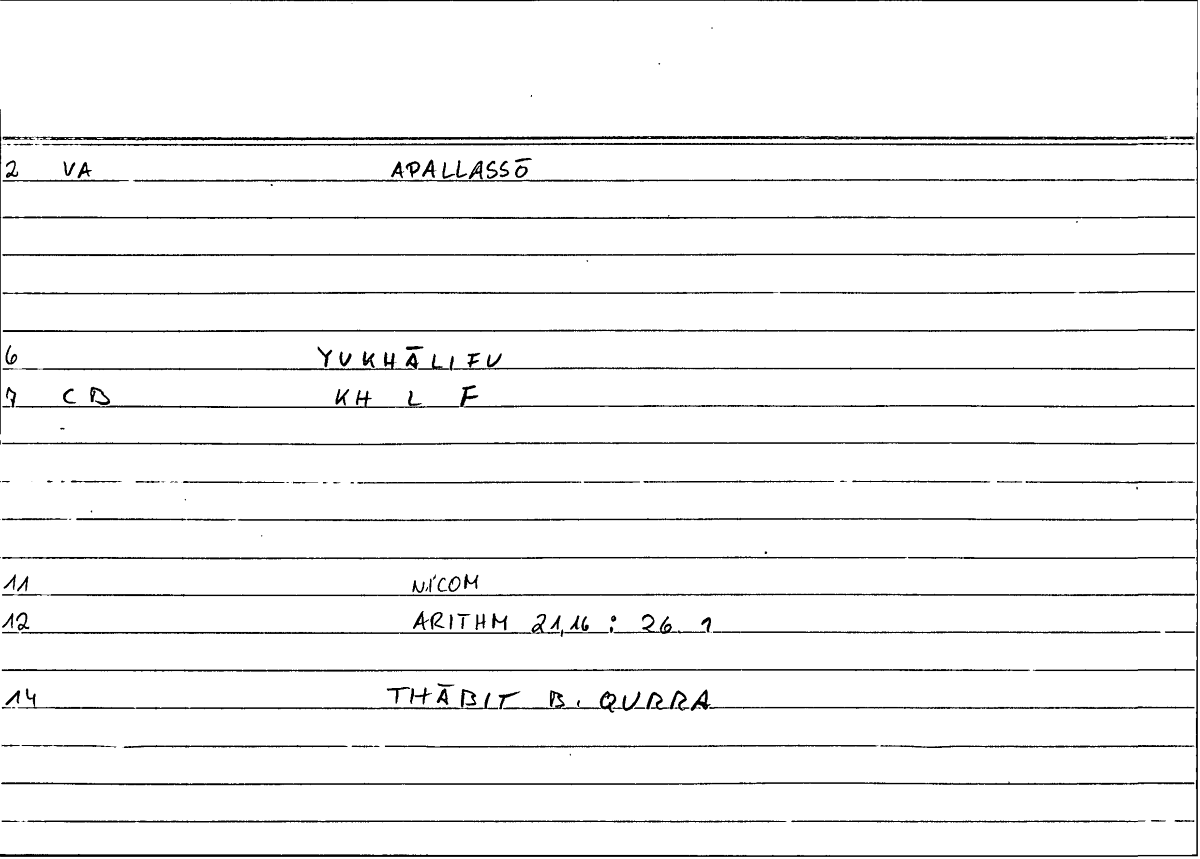 2 VA APALLASSŌ
6 YUKHĀLIFU
7 CB KH L F
11 NICOM
12 ARITHM 21,16 : 26.1
14 THĀBIT B. QURRA